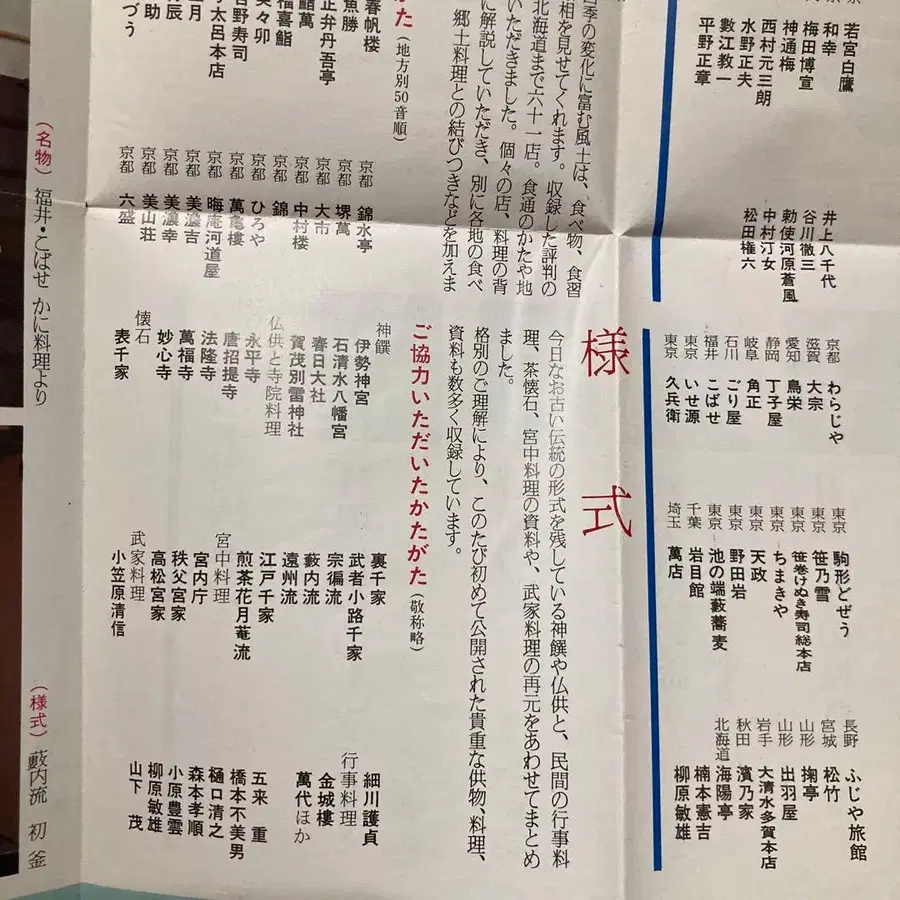 若宮白鷹
和幸
梅田博宣
神通梅
西村元三朗
水野正夫
數江教一
平野正章
井上八千代
谷川徹三
勅使河原蒼風
中村汀女
松田権六
京都 わらじや
滋賀 大宗
愛知 鳥栄
静岡 丁子屋
岐阜 角正
石川 ごり屋
福井 こばせ
東京 いせ源
東京 久兵衛
東京 駒形どぜう
東京 笹乃雪
東京 笹巻けぬき寿司総本店
東京 ちまきや
東京 天政
東京 野田岩
東京 池の端藪蕎麦
千葉 岩目館
埼玉 萬店
長野 ふじや旅館
宮城 松竹
山形 掬亭
山形 出羽屋
岩手 大清水多賀本店
秋田 濱乃家
北海道 海陽亭
楠本憲吉
柳原敏雄
四季の変化に富む風土は、食べ物、食習
相を見せてくれます。収録した評判の
北海道まで六十一店。食通のかたや地
いただきました。個々の店、料理の背
に解説していただき、別に各地の食べ
郷土料理との結びつきなどを加えま
がた(地方別50音順)
春帆楼
魚勝
正弁丹吾亭
鮨萬
福喜鮨
美々卯
吉野寿司
太呂本店
月
辰
助
づう
京都 錦水亭
京都 堺萬
京都 大市
京都 中村楼
京都 錦
京都 ひろや
京都 萬亀樓
京都 晦庵河道屋
京都 美濃吉
京都 美濃幸
京都 美山荘
京都 六盛
様式
今日なお古い伝統の形式を残している神饌や仏供と、民間の行事料
理、茶懐石、宮中料理の資料や、武家料理の再元をあわせてまとめ
ました。
格別のご理解により、このたび初めて公開された貴重な供物、料理、
資料も数多く収録しています。
ご協力いただいたかたがた(敬称略)
神饌
伊勢神宮
石清水八幡宮
春日大社
賀茂別雷神社
仏供と寺院料理
永平寺
唐招提寺
法隆寺
萬福寺
妙心寺
懐石
表千家
裏千家
武者小路千家
宗徧流
藪内流
遠州流
江戸千家
煎茶花月菴流
宮中料理
宮内庁
秩父宮家
高松宮家
武家料理
小笠原清信
細川護貞
行事料理
金城樓
萬代ほか
五来 重
橋本不美男
樋口清之
森本孝順
小原豊雲
柳原敏雄
山下 茂
(名物) 福井・こばせ かに料理より
(様式) 藪内流 初釜